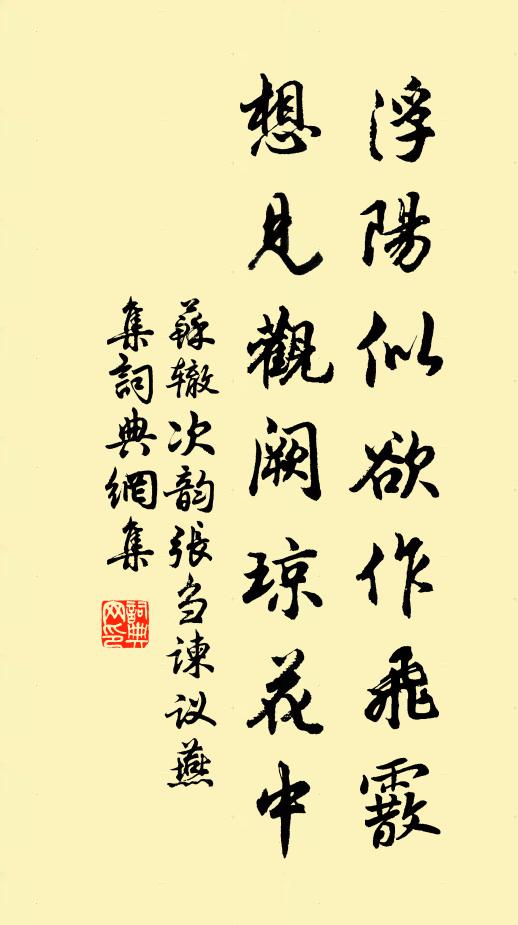 浮陽似欲作飛霰
想見觀闕琼花中
蘇辙次韵張刍諫议燕
集詞典網集
詞典网印